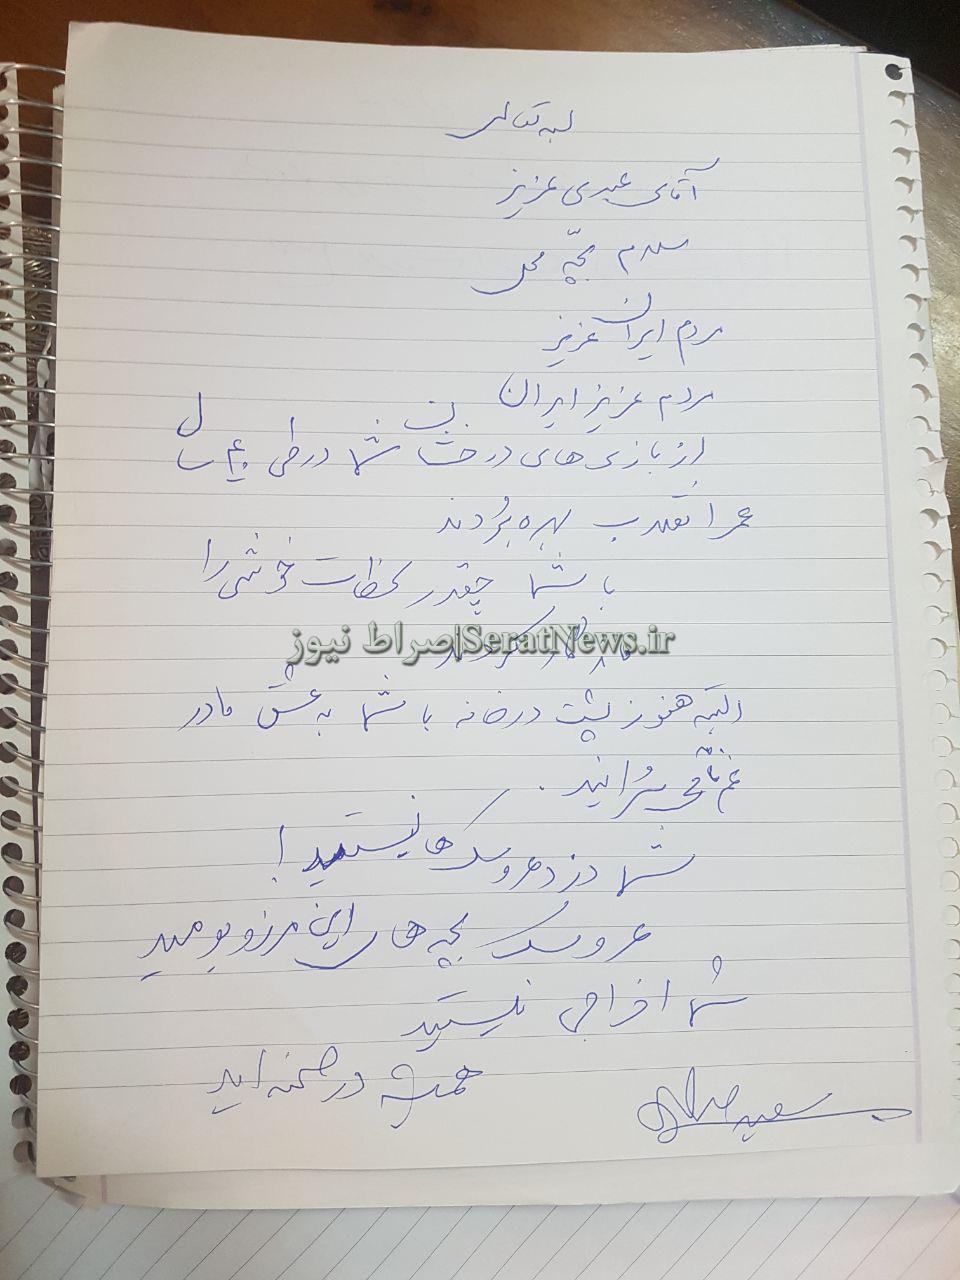 بسمه تعالی
آقای عبدی عزیز
سلام بچه محل
مردم ایران عزیز
مردم عزیز ایران
از بازی های درخشان شما در طی ۴۰ سال
عمر انقلاب بهره بُردند
با شما چقدر لحظات خوشی را
صراط نیوز|SeratNews.ir
البته هنوز پشت در خانه با شما به عشق مادر
غم می سُرانید.
شما دزد عروسک ها نیستید!
عروسک بچه های این مرز و بومید
شما اخراجی نیستید
همیشه در صحنه اید
سعید